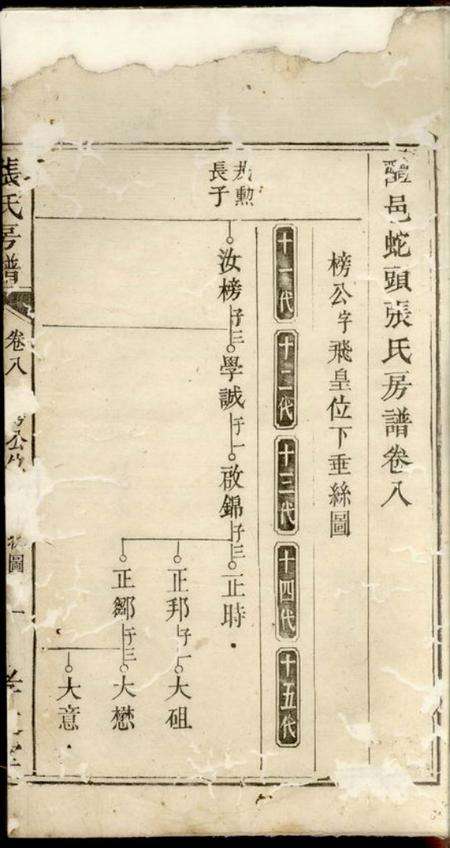 邑蛇頭張氏房譜卷八
榜公字飛皇位下垂絲圖
十一代
十二代
十三代
十四代
十五代
勲
長子
汝榜子三
學誠子一
啟錦子三
正時
正邦子一
大砠
正鄒子三
大懋
大意
張氏房譜
卷八
公
圖
一